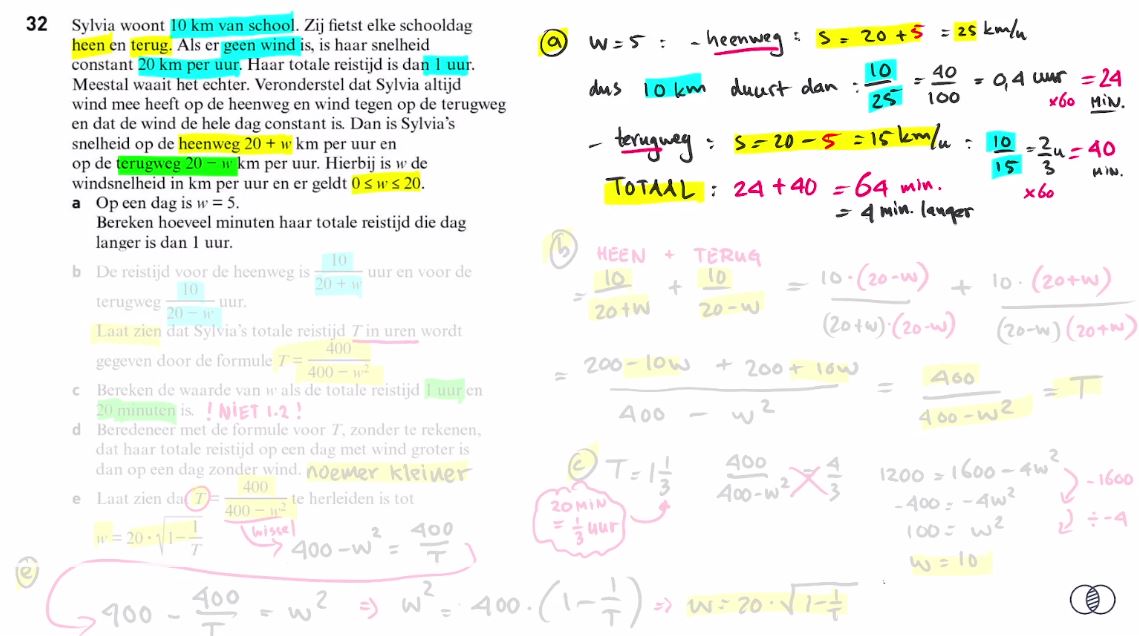 32 Sylvia woont 10 km van school. Zij fietst elke schooldag
heen en terug. Als er geen wind is, is haar snelheid
constant 20 km per uur. Haar totale reistijd is dan 1 uur.
Meestal waait het echter. Veronderstel dat Sylvia altijd
wind mee heeft op de heenweg en wind tegen op de terugweg
en dat de wind de hele dag constant is. Dan is Sylvia's
snelheid op de heenweg 20 + w km per uur en
op de terugweg 20 − w km per uur. Hierbij is w de
windsnelheid in km per uur en er geldt 0 ≤ w ≤ 20.
a Op een dag is w = 5.
Bereken hoeveel minuten haar totale reistijd die dag
langer is dan 1 uur.
b De reistijd voor de heenweg is 10/(20 + w) uur en voor de
terugweg 10/(20 − w) uur.
Laat zien dat Sylvia's totale reistijd T in uren wordt
gegeven door de formule T = 400/(400 − w²)
c Bereken de waarde van w als de totale reistijd 1 uur en
20 minuten is. ! NIET 1.2 !
d Beredeneer met de formule voor T, zonder te rekenen,
dat haar totale reistijd op een dag met wind groter is
dan op een dag zonder wind. noemer kleiner
e Laat zien da T = 400/(400 − w²) te herleiden is tot
w = 20 · √(1 − 1/T)
wissel
400 − w² = 400/T
e
400 − 400/T = w² => w² = 400 · (1 − 1/T) => w = 20 · √(1 − 1/T)
a W = 5 : - heenweg : S = 20 + 5 = 25 km/u
dus 10 km duurt dan : 10/25 = 40/100 = 0,4 uur = 24 MIN.
×60
- terugweg : S = 20 − 5 = 15 km/u : 10/15 = 2/3 u = 40 MIN.
×60
TOTAAL : 24 + 40 = 64 min.
= 4 min. langer
b HEEN + TERUG
= 10/(20+w) + 10/(20−w) = 10·(20−w)/(20+w)·(20−w) + 10·(20+w)/(20−w)(20+w)
= (200 − 10w + 200 + 10w)/(400 − w²) = 400/(400 − w²) = T
c T = 1 1/3 400/(400 − w²) = 4/3
20 MIN
= 1/3 uur
1200 = 1600 − 4w²
-1600
-400 = -4w²
÷ -4
100 = w²
w = 10